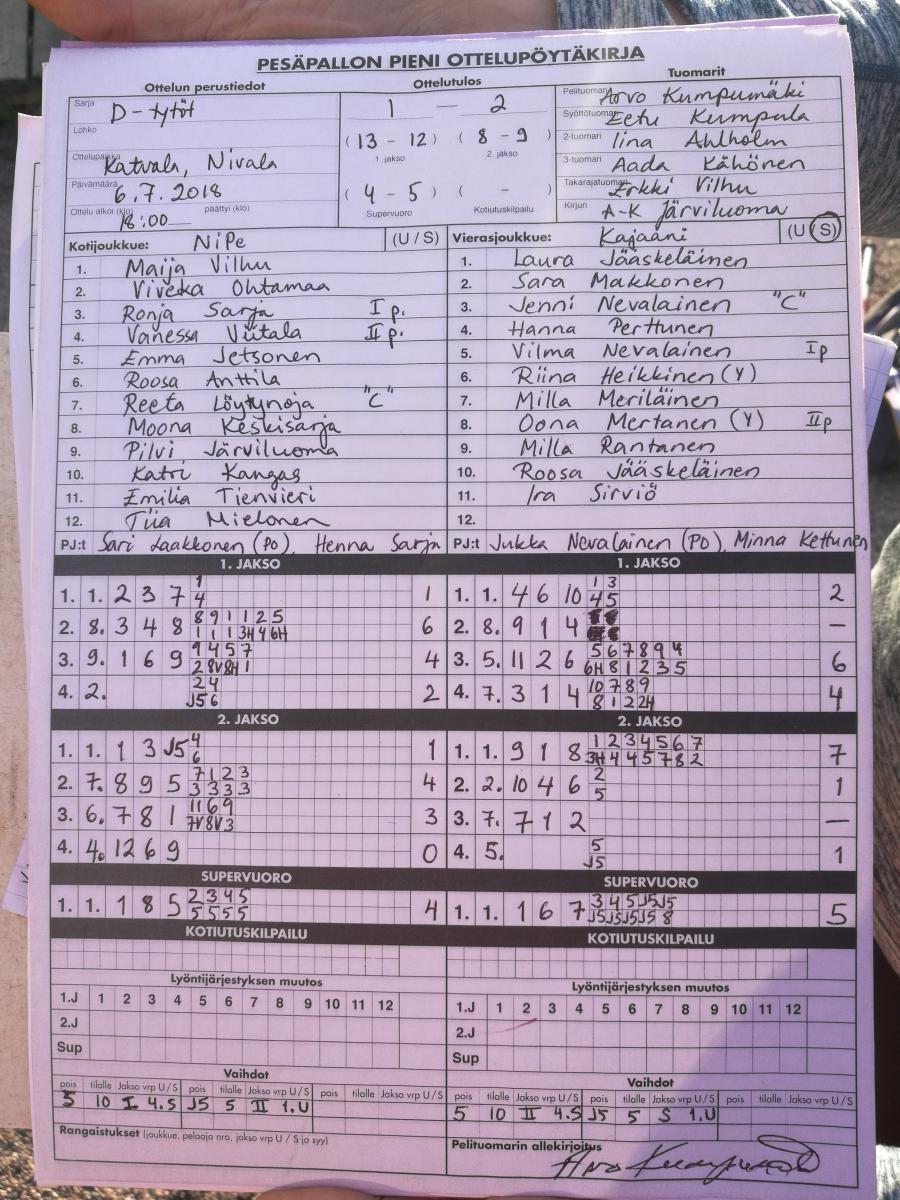 PESÄPALLON PIENI OTTELUPÖYTÄKIRJA
Ottelun perustiedot
Sarja D-tytöt
Lohko
Ottelupaikka Katvala, Nivala
Päivämäärä 6.7.2018
Ottelu alkoi (klo) 18:00 päättyi (klo)
Ottelutulos
1 — 2
(13 - 12) (8 - 9)
1. jakso 2. jakso
(4 - 5) ( - )
Supervuoro Kotiutuskilpailu
Tuomarit
Pelituomari Arvo Kumpumäki
Syöttötuomari Eetu Kumpula
2-tuomari Iina Ahlholm
3-tuomari Aada Kähönen
Takarajatuomari Erkki Vilhu
Kirjuri A-K Järviluoma
Kotijoukkue: NiPe (U / S)
1. Maija Vilhu
2. Viveka Ohtamaa
3. Ronja Sarja I p.
4. Vanessa Viitala II p.
5. Emma Jetsonen
6. Roosa Anttila
7. Reeta Löytynoja "C"
8. Moona Keskisarja
9. Pilvi Järviluoma
10. Katri Kangas
11. Emilia Tienvieri
12. Tiia Mielonen
PJ:t Sari Laakkonen (PO), Henna Sarja
Vierasjoukkue: Kajaani (U (S))
1. Laura Jääskeläinen
2. Sara Makkonen
3. Jenni Nevalainen "C"
4. Hanna Perttunen
5. Vilma Nevalainen Ip
6. Riina Heikkinen (Y)
7. Milla Meriläinen
8. Oona Mertanen (Y) IIp
9. Milla Rantanen
10. Roosa Jääskeläinen
11. Ira Sirviö
12.
PJ:t Jukka Nevalainen (PO), Minna Kettunen
1. JAKSO
1
1. 1. 2 3 7 4 1
8 9 1 1 2 5
2. 8. 3 4 8 1 1 1 3H 4 6H 6
9 4 5 7
3. 9. 1 6 9 2 8V 8H 1 4
2 4
4. 2. J5 6 2
1. JAKSO
1 3
1. 1. 4 6 10 4 5 2
2. 8. 9 1 4 —
5 6 7 8 9 4
3. 5. 11 2 6 6H 8 1 2 3 5 6
10 7 8 9
4. 7. 3 1 4 8 1 2 2H 4
2. JAKSO
4
1. 1. 1 3 J5 6 1
7 1 2 3
2. 7. 8 9 5 3 3 3 3 4
11 6 9
3. 6. 7 8 1 7V 8V 3 3
4. 4. 12 6 9 0
2. JAKSO
1 2 3 4 5 6 7
1. 1. 9 1 8 3H 4 4 5 7 8 2 7
2
2. 2. 10 4 6 5 1
3. 7. 7 1 2 —
5
4. 5. J5 1
SUPERVUORO
2 3 4 5
1. 1. 1 8 5 5 5 5 5 4
SUPERVUORO
3 4 5 J5 J5
1. 1. 1 6 7 J5 J5 J5 J5 8 5
KOTIUTUSKILPAILU
KOTIUTUSKILPAILU
Lyöntijärjestyksen muutos
1.J 1 2 3 4 5 6 7 8 9 10 11 12
2.J
Sup
Lyöntijärjestyksen muutos
1.J 1 2 3 4 5 6 7 8 9 10 11 12
2.J
Sup
Vaihdot
pois tilalle Jakso vrp U / S pois tilalle Jakso vrp U / S pois tilalle Jakso vrp U / S
5 10 I 4.S J5 5 II 1.U
Vaihdot
pois tilalle Jakso vrp U / S pois tilalle Jakso vrp U / S pois tilalle Jakso vrp U / S
5 10 II 4.S J5 5 S 1.U
Rangaistukset (joukkue, pelaaja nro, jakso vrp U / S ja syy)
Pelituomarin allekirjoitus